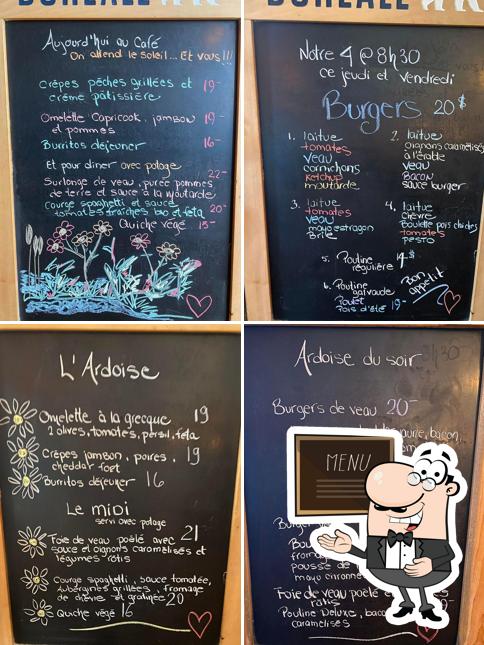 Aujourd'hui au Café
On attend le soleil... Et vous!!!
Crêpes pêches grillées et 19-
crème pâtissière
Omelette Capricook, jambon 19-
et pommes
Burritos déjeuner 16-
Et pour diner avec potage
22-
Surlonge de veau, purée pommes
de terre et sauce à la moutarde
Courge spaghetti et sauce 20-
tomates fraîches bio et feta
Quiche végé 15-
Notre 4 @ 8h30
ce jeudi et vendredi
Burgers 20$
1. laitue
tomates
veau
cornichons
ketchup
moutarde
2. laitue
oignons caramélisés
à l'érable
veau
Bacon
sauce burger
3. laitue
tomates
veau
mayo estragon
Brie
4. laitue
chèvre
Boulette pois chiches
tomates
pesto
5. Poutine 14$
régulière
6. Poutine
galvaude
Poulet
Pois d'été 19-
Bon
appétit
L'Ardoise
Omelette à la grecque 19
2 olives, tomates, persil, feta
Crêpes jambon, poires, 19
cheddar fort
Burritos déjeuner 16
Le midi
servi avec potage
Foie de veau poêlé avec 21
sauce et oignons caramélisés et
légumes rôtis
Courge spaghetti, sauce tomatée,
aubergines grillées, fromage
de chèvre et gratinée 20
Quiche végé 16
Ardoise du soir
Burgers de veau 20-
bacon,
MENU
Foie de veau poêlé
rôtis
Poutine Deluxe, bacon
caramélisés